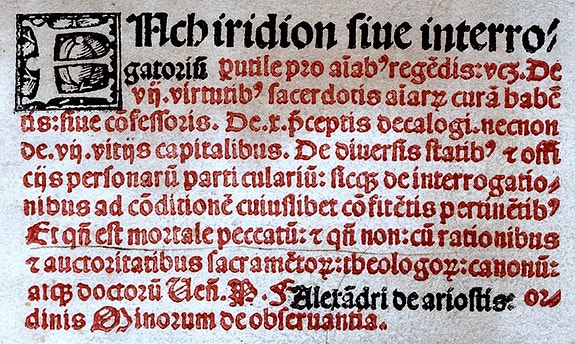 ENchiridion siue interro⸗
gatoriũ ꝑutile pro aĩabꝰ regẽdis: vcꝫ. De
.vij. virtutibꝰ sacerdotis aĩarꝝ curã habẽ
tis: siue cõfessoris. De .x. p̃ceptis decalogi. necnon
de .vij. vitijs capitalibus. De diuersis statibꝰ ⁊ offi
cijs personarũ particulariũ: sicqꝫ de interrogatio⸗
nibus ad cõditionẽ cuiuslibet cõfitẽtis pertinẽtibꝰ
Et qñ est mortale peccatũ: ⁊ qñ non: cũ rationibus
⁊ auctoritatibus sacramẽtoꝝ: theologoꝝ: canonũ:
atqꝫ doctorũ Ueñ. P. F. Alexãdri de ariostis: or⸗
dinis Minorum de obseruantia.